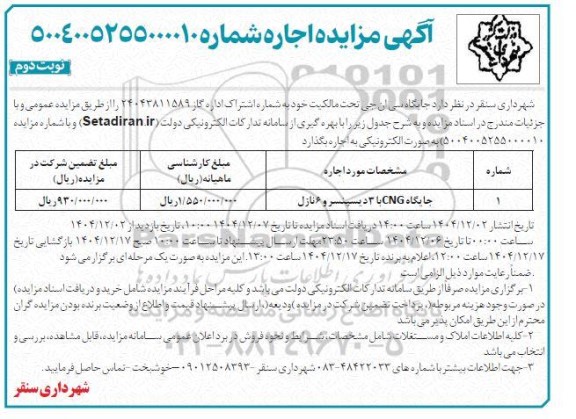 آگهی مزایده اجاره شماره ۵۰۰۴۰۰۵۲۵۵۰۰۰۰۱۰
نوبت دوم
شهرداری سنقر در نظر دارد جایگاه سی ان جی تحت مالکیت خود به شماره اشتراک اداره گاز ۲۴۰۴۳۸۱۱۵۸۹ را از طریق مزایده عمومی و با
جزئیات مندرج در اسناد مزایده و به شرح جدول زیر را با بهره گیری از سامانه تدارکات الکترونیکی دولت (Setadiran.ir) و با شماره مزایده
۵۰۰۴۰۰۵۲۵۵۰۰۰۰۱۰ به صورت الکترونیکی به اجاره بگذارد
شماره مشخصات مورد اجاره مبلغ کارشناسی ماهیانه(ریال) مبلغ تضمین شرکت در مزایده(ریال)
۱ جایگاه CNG با ۳ دیسپنسر و ۶ نازل ۱/۵۵۰/۰۰۰/۰۰۰ ریال ۹۳۰/۰۰۰/۰۰۰ ریال
تاریخ انتشار ۱۴۰۴/۱۲/۰۲ ساعت ۱۴:۰۰ دریافت اسناد مزایده تا تاریخ ۱۴۰۴/۱۲/۰۷ ۱۰:۰۰، تاریخ بازدید از ۱۴۰۴/۱۲/۰۲
ساعت ۰۰:۰۰ تا تاریخ ۱۴۰۴/۱۲/۰۶ ساعت ۲۳:۵۰ مهلت ارسال پیشنهاد تا ساعت ۱۰:۰۰ صبح ۱۴۰۴/۱۲/۱۷ بازگشایی تاریخ
۱۴۰۴/۱۲/۱۷ ساعت ۱۲:۰۰ اعلام به برنده تاریخ ۱۴۰۴/۱۲/۱۷ ساعت ۱۳:۰۰. این مزایده به صورت یک مرحله ای برگزار می شود
. ضمناً رعایت موارد ذیل الزامی است
۱-برگزاری مزایده صرفا از طریق سامانه تدارکات الکترونیکی دولت می باشد و کلیه مراحل فرآیند مزایده شامل خرید و دریافت اسناد مزایده(
در صورت وجود هزینه مربوطه)، پرداخت تضمین شرکت در مزایده (ودیعه)، ارسال پیشنهاد قیمت و اطلاع از وضعیت برنده بودن مزایده گران
محترم از این طریق امکان پذیر می باشد
۲-کلیه اطلاعات املاک و مستغلات شامل مشخصات، شرایط و نحوه فروش در برد اعلان عمومی سامانه مزایده، قابل مشاهده، بررسی و
انتخاب می باشد
۳-جهت اطلاعات بیشتر با شماره های ۴۸۴۲۲۰۳۳-۰۸۳ شهرداری سنقر -۰۹۰۱۲۵۰۸۳۹۳ خوشبخت - تماس حاصل فرمایید.
شهرداری سنقر
۰۲۱-۸۸۳۴۹۶۷۰-۵